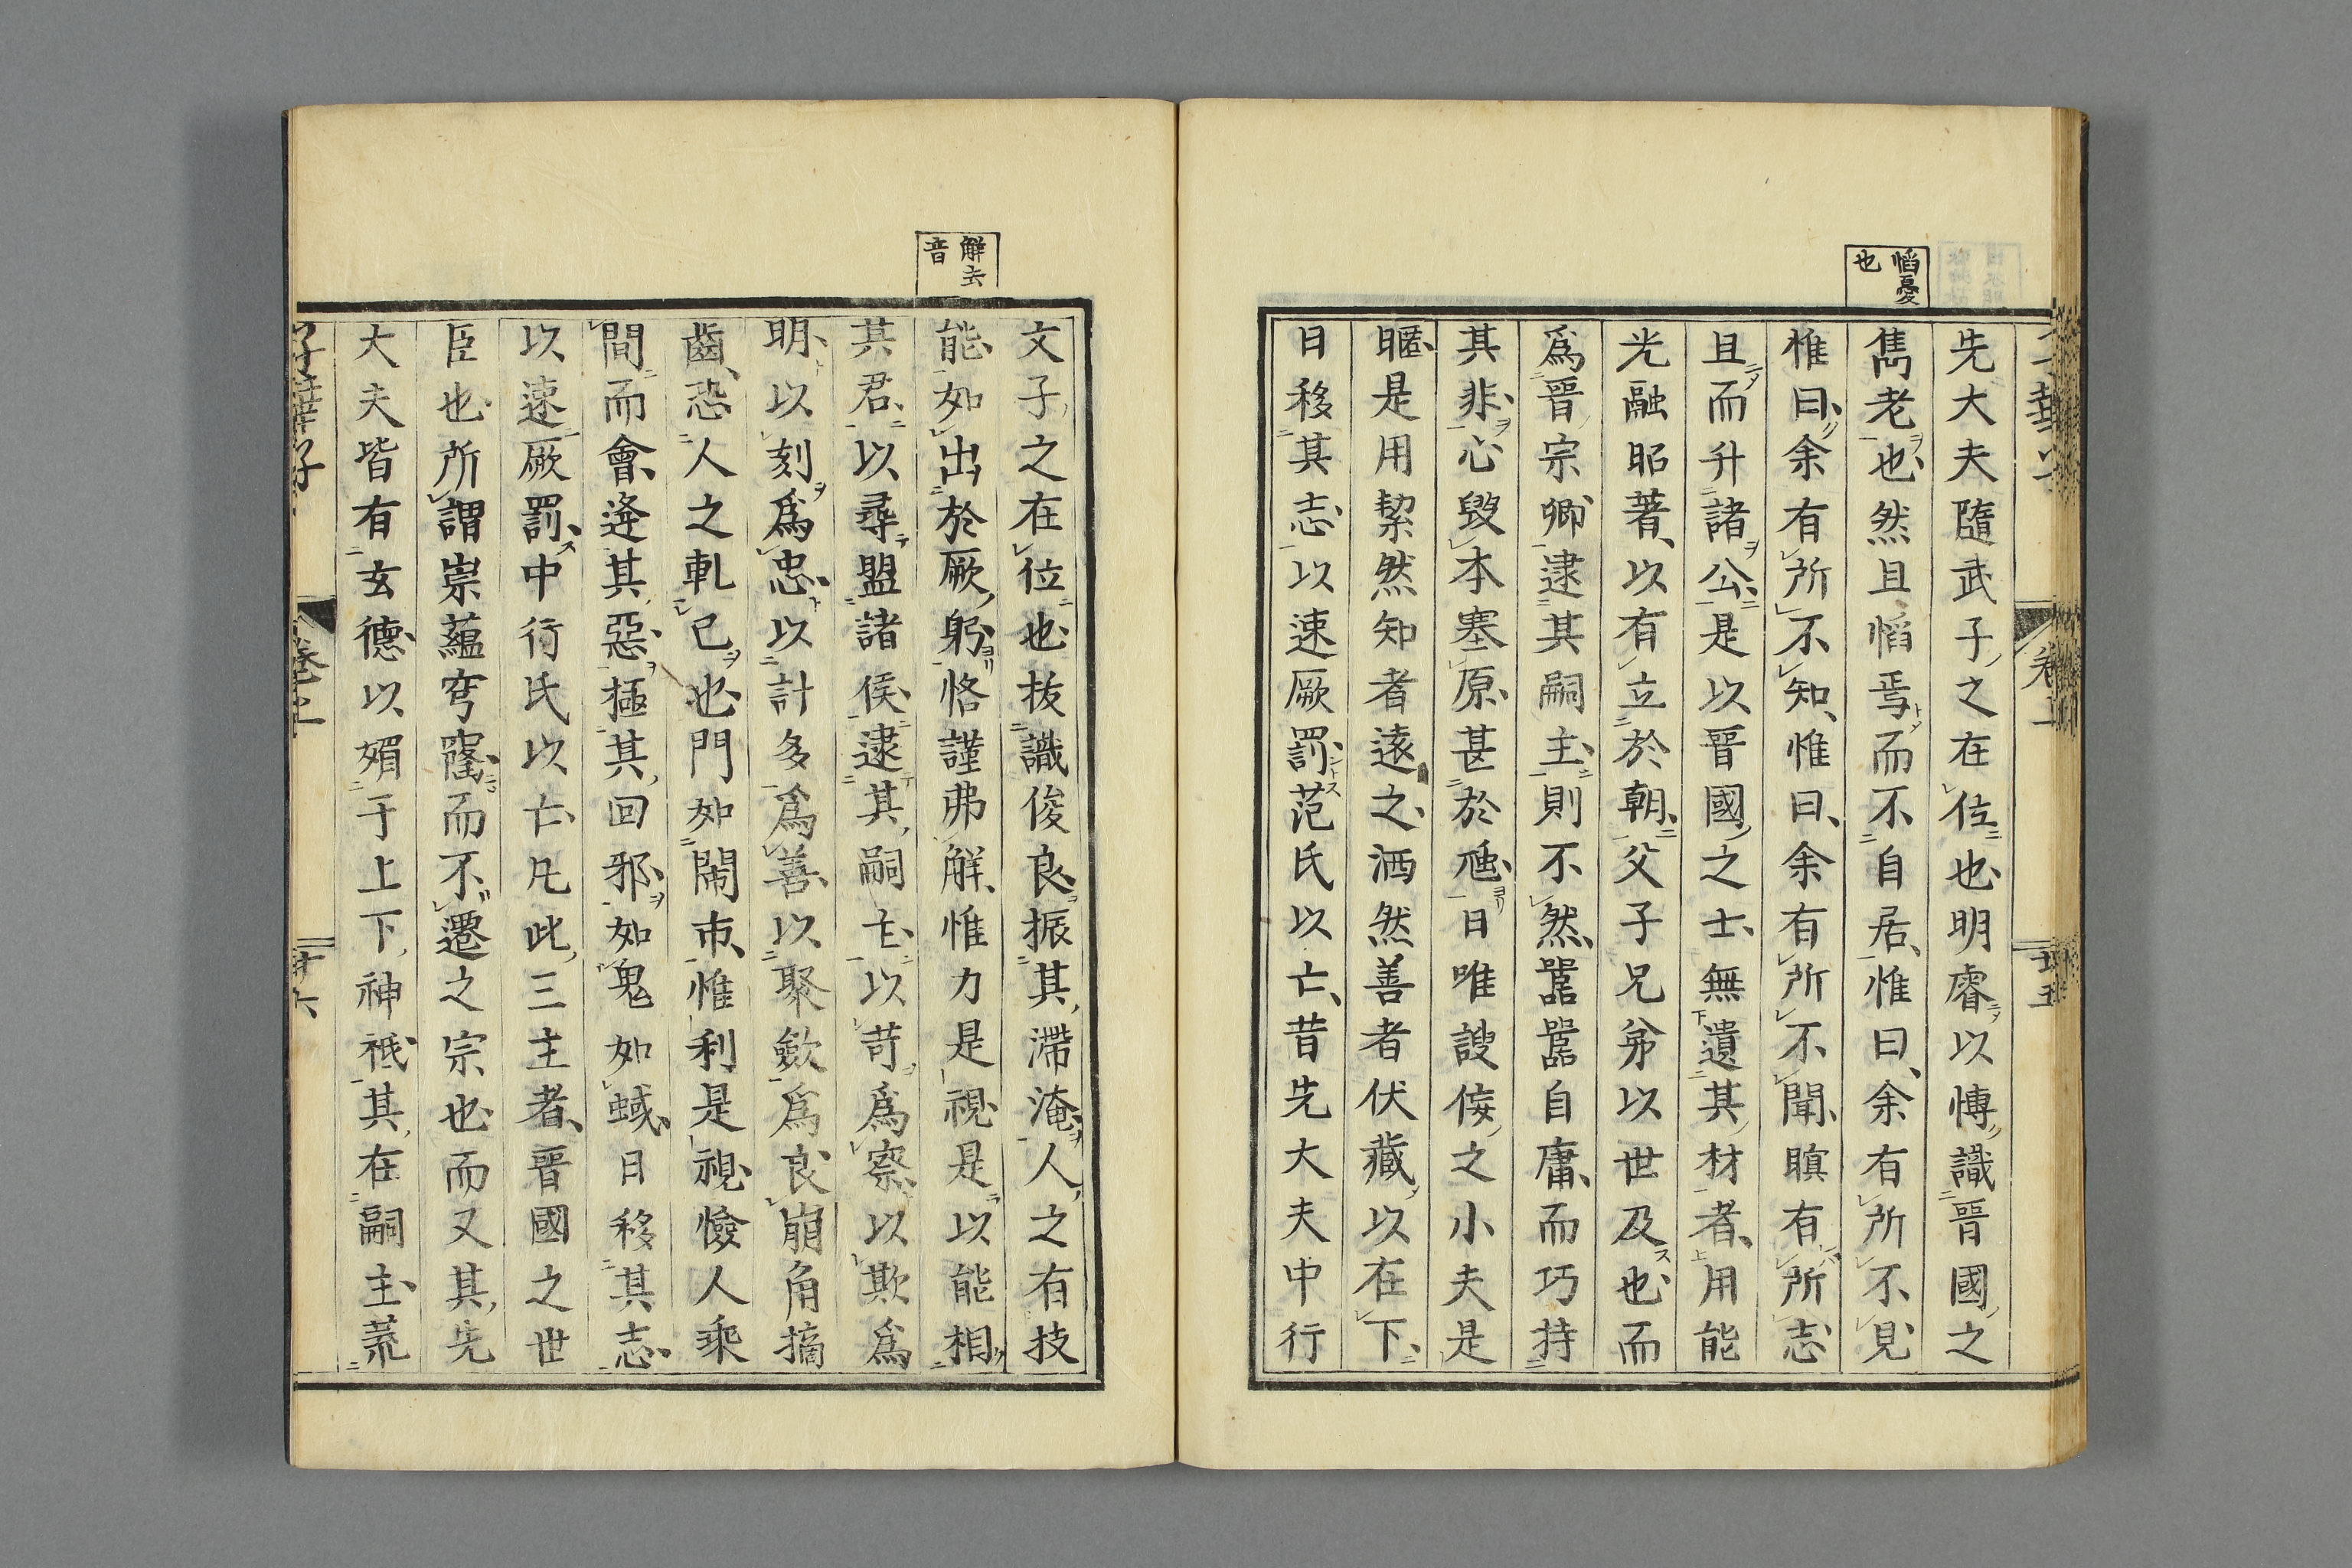 慆憂
也
先大夫隨武子之在位也明睿以愽識晉國之
雋老也然且慆焉而不自居惟曰余有所不見
惟曰余有所不知惟曰余有所不聞瞑有所志
且而升諸公是以晉國之士無遺其材者用能
光融昭著以有立於朝父子兄弟以世及也而
爲晉宗卿逮其嗣主則不然嚚嚚自庸而巧持
其非心毀本塞原甚於虺日唯謏佞之小夫是
暱是用絜然知者遠之洒然善者伏藏以在下
日移其志以速厥罰范氏以亡昔先大夫中行
解去
音
文子之在位也抜識俊良振其滯淹人之有技
能如出於厥躬恪謹弗解惟力是視是以能相
其君以尋盟諸侯逮其嗣亡以苛爲察以欺爲
明以刻爲忠以計多爲善以聚歛爲良崩角摘
齒恐人之軋已也門如閙市惟利是視憸人乘
間而會逢其惡極其回邪如鬼如蜮日移其志
以速厥罰中行氏以亡凡此三主者晉國之世
臣也所謂崇蘊穹窿而不遷之宗也而又其先
大夫皆有玄德以媚于上下神祇其在嗣主荒